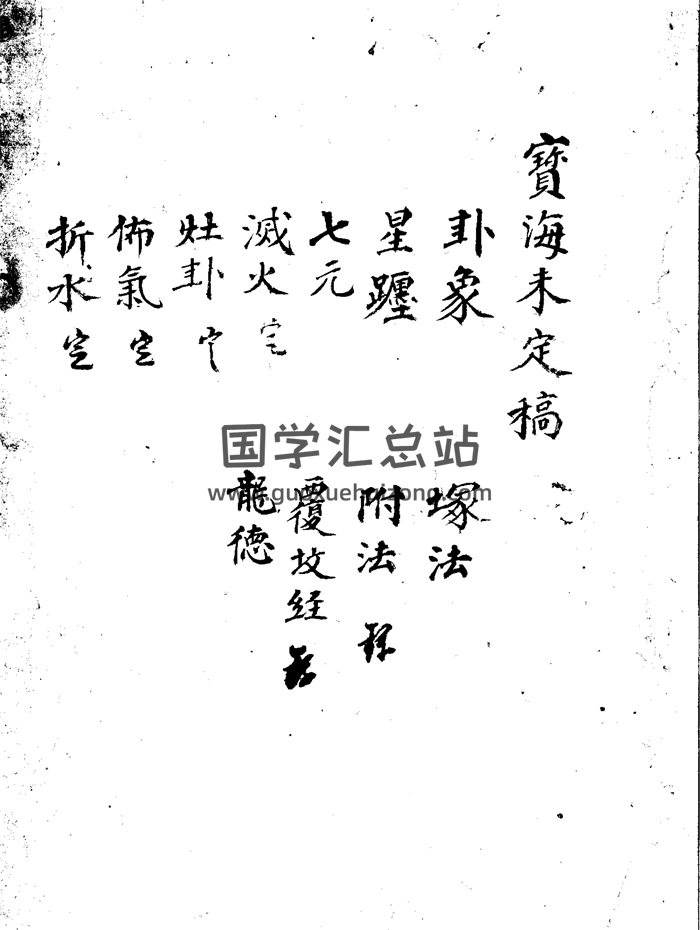 寶海未定稿
卦象
塚法
星躔
附法
七元
覆坟经
滅火
定
龍德
灶卦
佈氣
定
折水
定
国学汇总站
www.guoxuehuizong.com